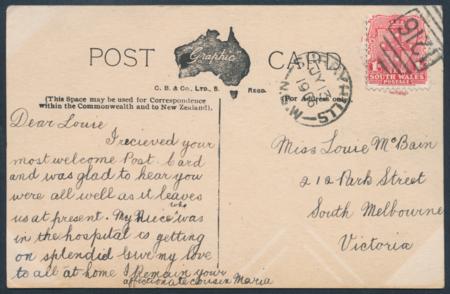 POST CARD
Graphic
C. B. & Co., Ltd., S. REGD.
(This Space may be used for Correspondence
within the Commonwealth and to New Zealand).
(For Address only
HILLS
JY 13
N.S.W
SOUTH WALES
Dear Louie
I recieved your
most welcome Post Card
and was glad to hear you
were all well as it leaves
us at present. My Niece who was
in the hospital is getting
on splendid Give my love
to all at home I Remain your
affictionate cousin Maria
Miss Louie McBain
212 Park Street
South Melbourne
Victoria